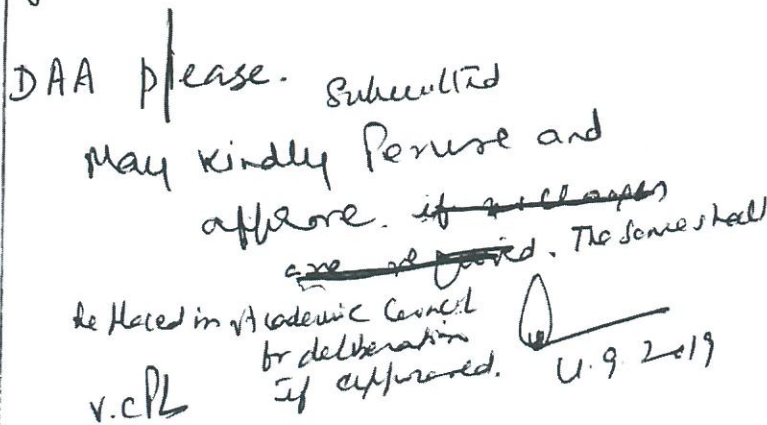 DAA please. Submitted
May Kindly Peruse and
approve. if no changes
are required. The same shall
be Placed in Academic Council
for deliberation
If approved. 4.9.2019
V.C Pl